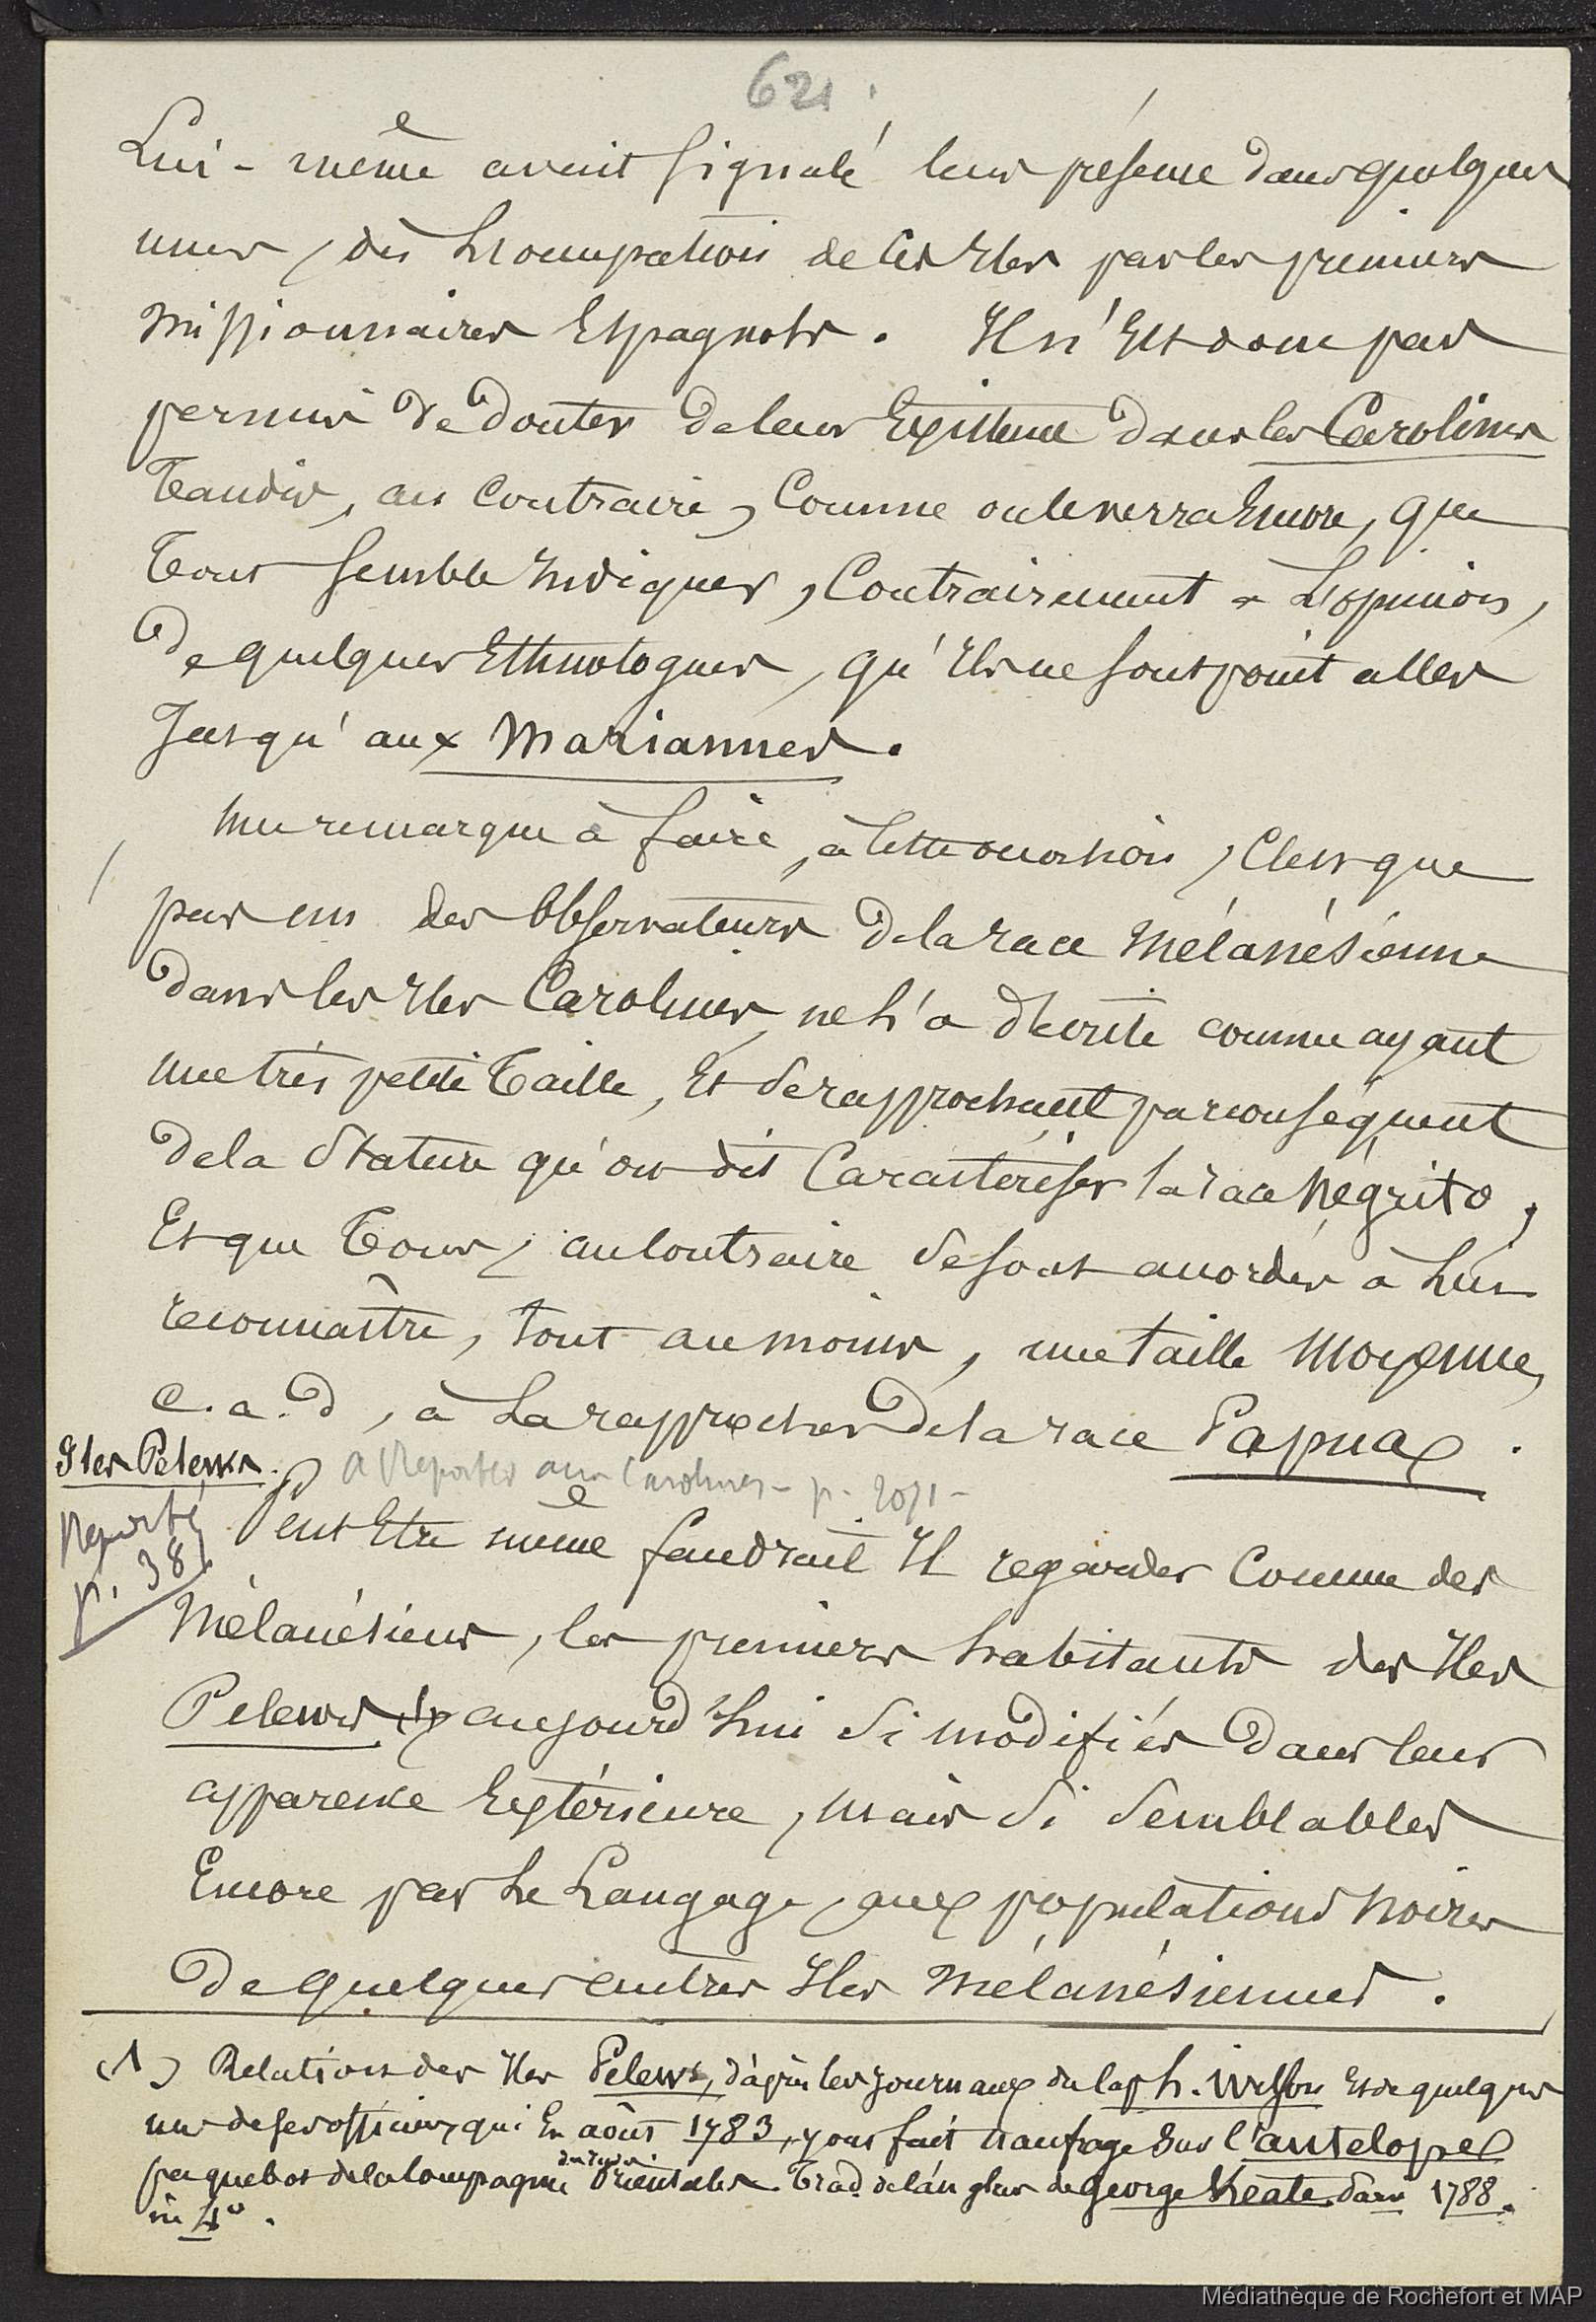 621.
Lui-même avait signalé leur présence dans quelques
unes, dès l'occupation de ces Iles par les premiers
missionnaires Espagnols. Il n'est donc pas
permis de douter de leur Existence dans les Carolines
tandis, au contraire, comme on le verra Encore, que
tout semble Indiquer, Contrairement à L'opinion,
de quelques Ethnologues, qu'Ils ne sont point allés
Jusqu'aux Mariannes.
Une remarque à faire, à Cette occasion, C'est que
pas un des Observateurs de la race Mélanésienne
dans les Iles Carolines, ne l'a décrite comme ayant
une très petite taille, Et se rapprochant par conséquent
de la Stature qu'on dit Caractériser la race Négrito,
Et que tous, au contraire se sont accordés à lui
reconnaître, tout au moins, une taille moyenne,
c.a.d, à La rapprocher de la race Papua.
Iles Pelews.
A Reporter aux Carolines - p. 2071 -
Reporté
p. 381
Peut Etre même faudrait Il regarder Comme des
Mélanésiens, les premiers habitants des Iles
Pelews (1) aujourd'hui si modifiés dans leur
apparence Extérieure, mais si semblables
Encore par Le Langage, aux populations noires
de quelques autres Iles Mélanésiennes.
(1) Relation des Iles Pelews, d'après les journaux du cap h. Wilson Et de quelques
uns de ses officiers, qui En août 1783, y ont fait naufrage sur l'antelope
paquebot de la Compagnie des Indes Orientales. Trad. de l'anglais de George Keate. Paris 1788.
in 4°.
Médiathèque de Rochefort et MAP